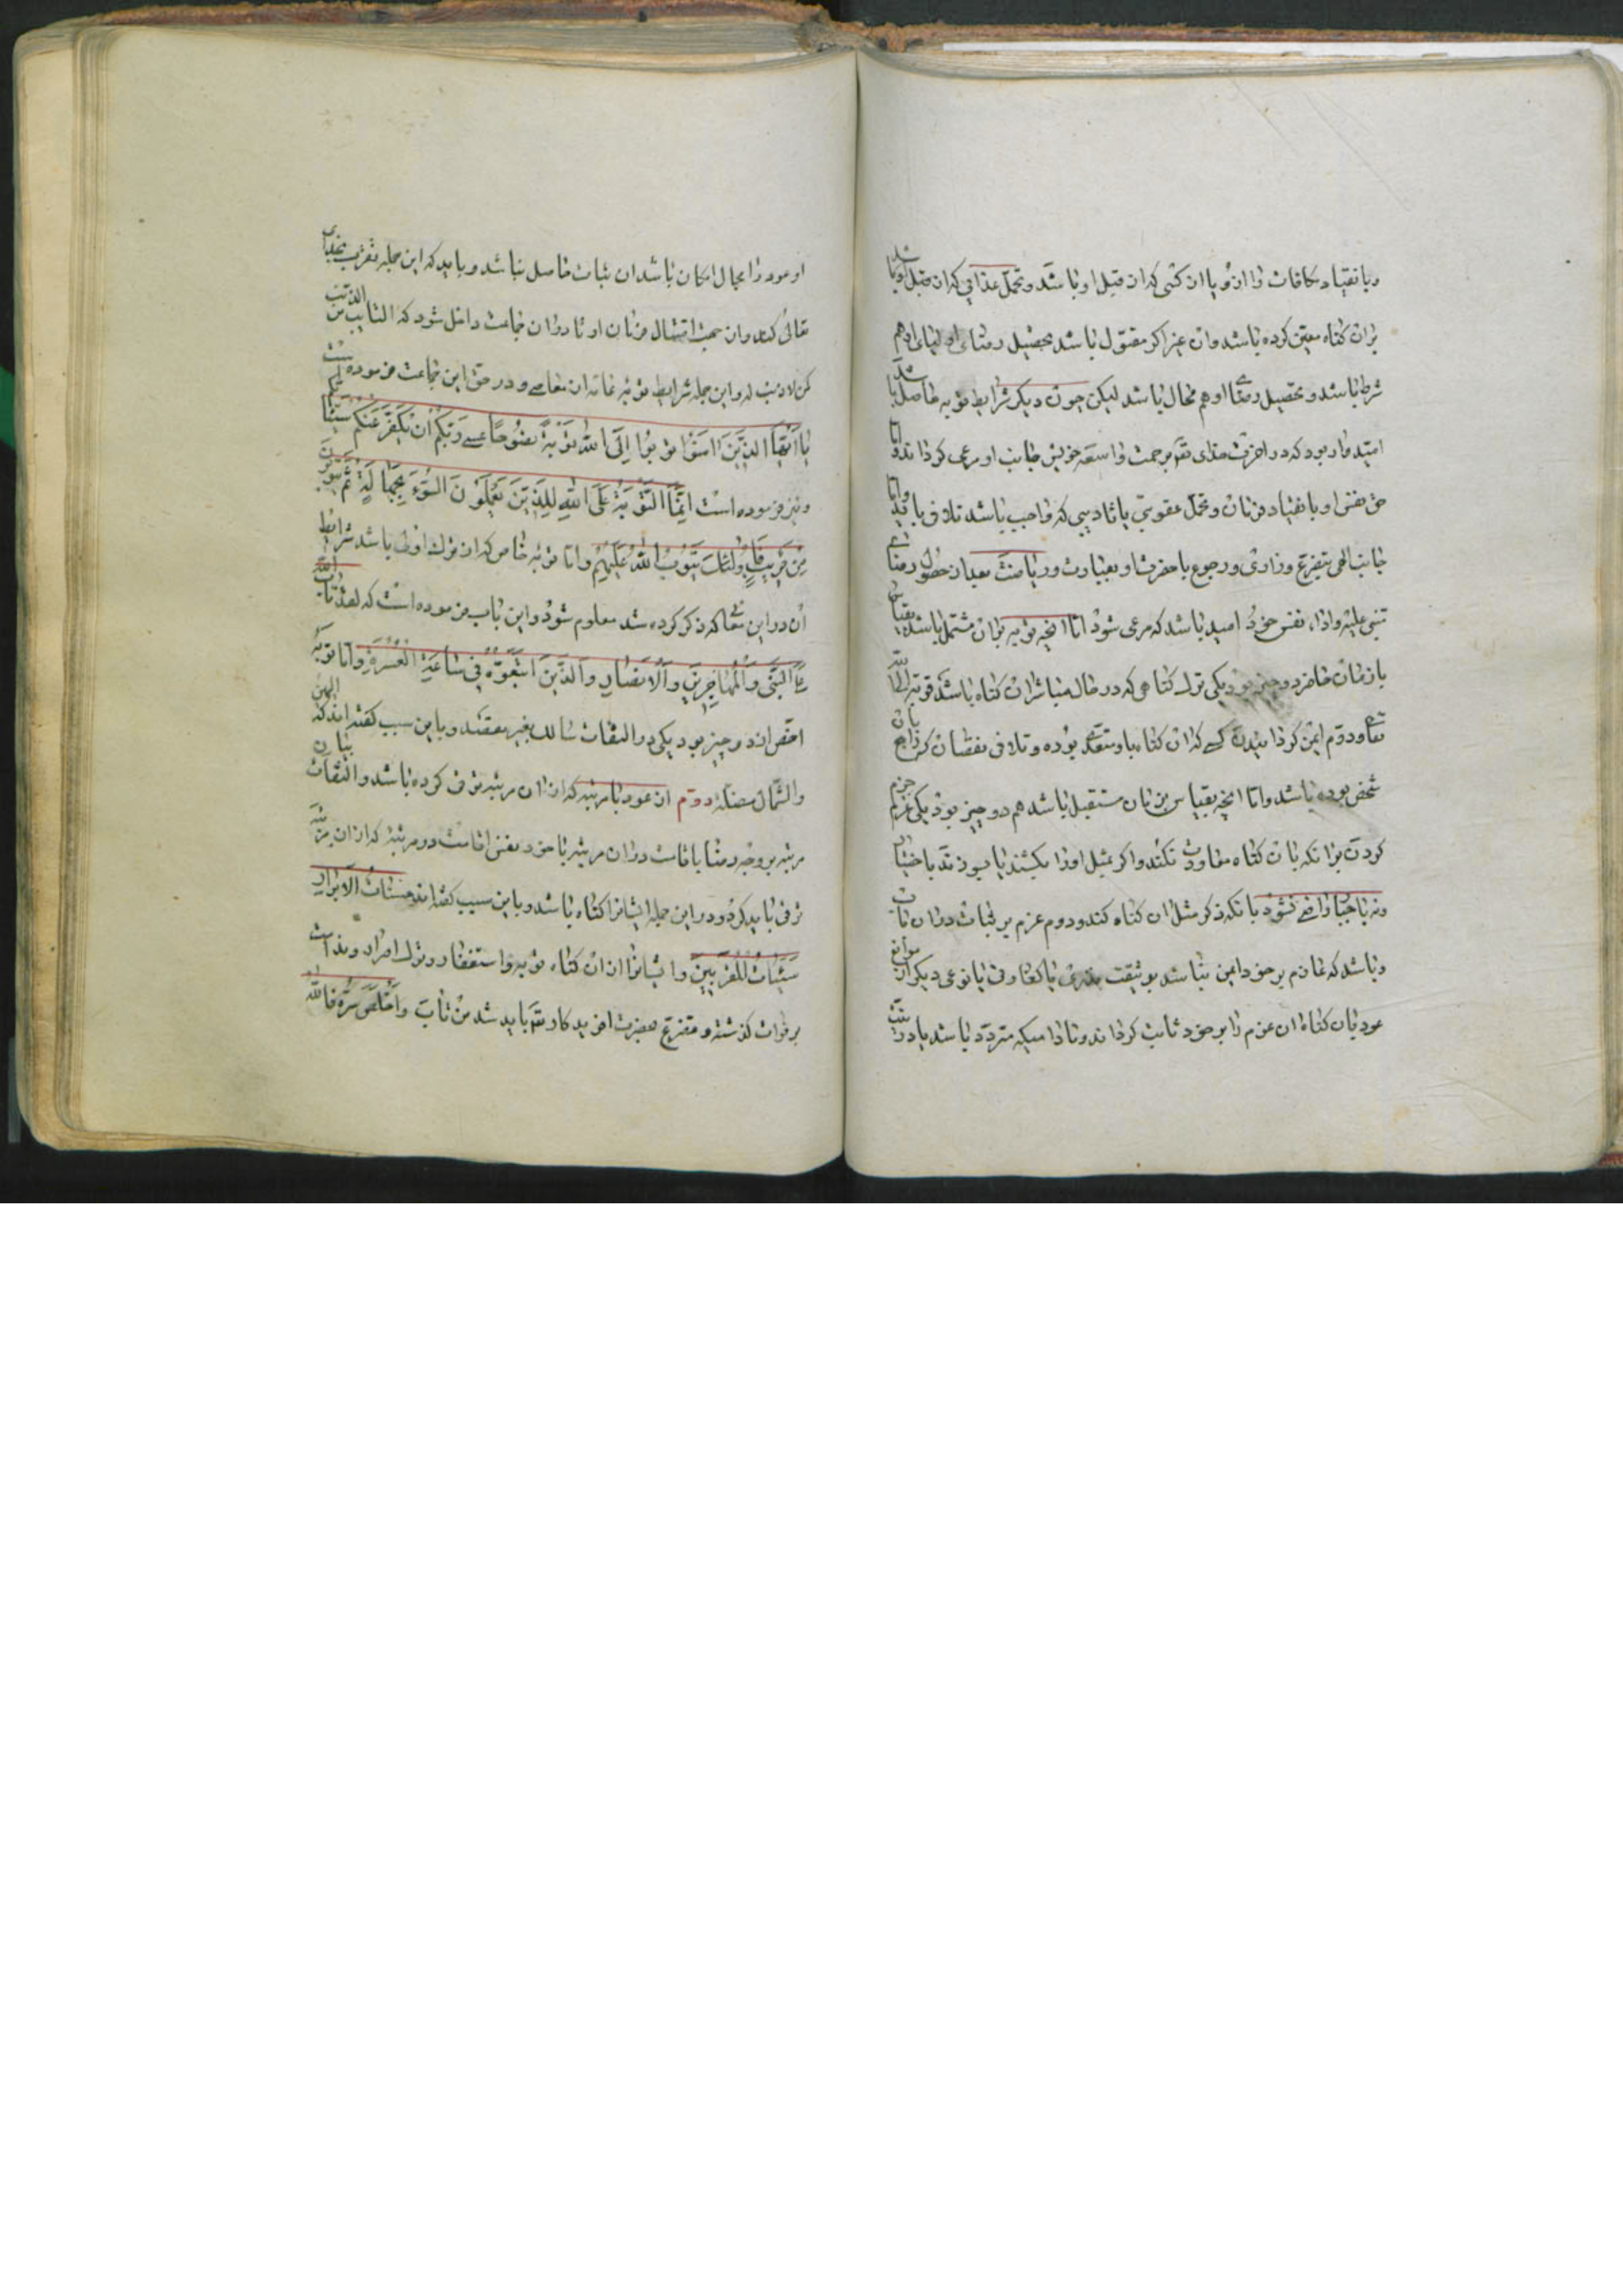 وبانقیاد مکافات را ازو یا از کسی که از قبل او باشد و تحمل عذابی که از قبل او یا باشد
بران کناه معین کرده باشد وان غیر اکر مقتول باشد تحصیل رضای اولیای او هم
شرط باشد و تحصیل رضا او هم محال باشد لیکن چون دیکر شرایط توبه حاصل باشد
امیدوار بود که در اخرت خدای تعم برحمت واسعه خویش جانب او مرعی کرداند و اما
حق نفس او بانقیاد فرمان و تحمل عقوبتی یا تادیبی که واجب باشد تلافی باید و اما
جانب الهی بتضرع و زاری و رجوع با حضرت او بعبادت و ریاضت بعد از حصول رضای
مجنی علیه و اداء نفس خود امید باشد که مرعی شود اما انچه توبه بران مشتمل باشد بقیاس
با زمان حاضر دو چیز بود یکی ترک کناهی که در حال مباشر ان کناه باشد قربة الی الله
تعالی و دوم ایمن کردانیدن کسی که ان کناه باو متعدی بوده و تلافی نقصان که راجع بان
شخص بوده باشد و اما انچه بقیاس بزمان مستقبل باشد هم دو چیز بود یکی عزم جزم
کردن برانکه بان کناه معاودت نکند و اکر بمثل اورا بکشند یا بسوزند باختیار
و نه باجبار راضی نشود بانکه دکر مثل ان کناه کند و دوم عزم بر ثبات دران باب
و باشد که عازم بر خود ایمن نباشد بوثیقت نذری یا کفارتی یا نوعی دیکر از موانع
عود بان کناه ان عزم را بر خود ثابت کرداند و تا دامیکه متردد باشد یا در نیت
او عود را مجال امکان باشد ان ثبات حاصل نباشد و باید که این جمله تقرب بخدای
تعالی کند و از جهت امتثال فرمان او تا دران جماعت داخل شود که التایب من الذنب
کمن لا ذنب له و این جمله شرایط توبه عامه از معاصی و در حق این جماعت فرموده است
یا ایها الذین امنوا توبوا الی الله توبة نصوحا عسی ربکم ان یکفر عنکم سیئاتکم
و نیز فرموده است انما التوبة علی الله للذین یعملون السوء بجهالة ثم یتوبون
من قریب فاولئک یتوب الله علیهم و اما توبه خاص که از ترک اولی باشد شرایط
ان در این معانی که ذکر کرده شد معلوم شود و این باب فرموده است که لقد تاب الله
علی النبی والمهاجرین والانصار والذین اتبعوه فی ساعة العسرة و اما توبه
اخص از دو چیز بود یکی در التفات سالک بغیر مقصد و باین سبب کفته اند که الیمین
والشمال مضلة دوم از عود با مرتبه که از ان مرتبه ترقی کرده باشد و التفات بان
مرتبه بر وجه رضا باقامت دران مرتبه با خود نفس اقامت در مرتبه که از ان مرتبه
ترقی باید کرد و در این جمله ایشانرا کناه باشد و باین سبب کفته اند حسنات الابرار
سیئات المقربین و ایشانرا از ان کناه توبه و استغفار و ترک اصرار و ندامت
بر فوات کذشته و تضرع بحضرت افریدکار تعم باید شد من تاب و اخلص سره فالله